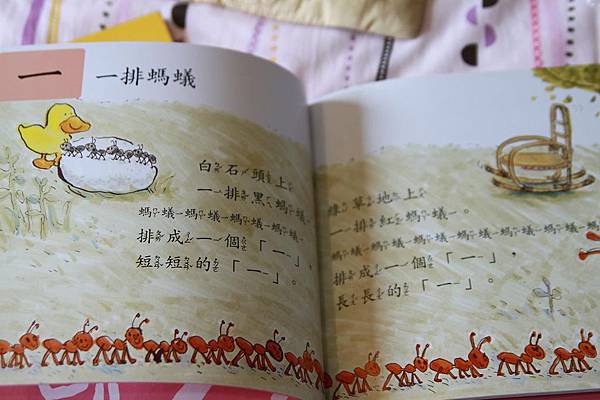 一
一排螞蟻
白石頭上
一排黑螞蟻，
螞蟻螞蟻螞蟻螞蟻
排成一個「一」，
短短的「一」。
綠草地上
一排紅螞蟻。
螞蟻螞蟻螞蟻螞蟻螞蟻螞蟻螞蟻
排成一個「一」，
長長的「一」。